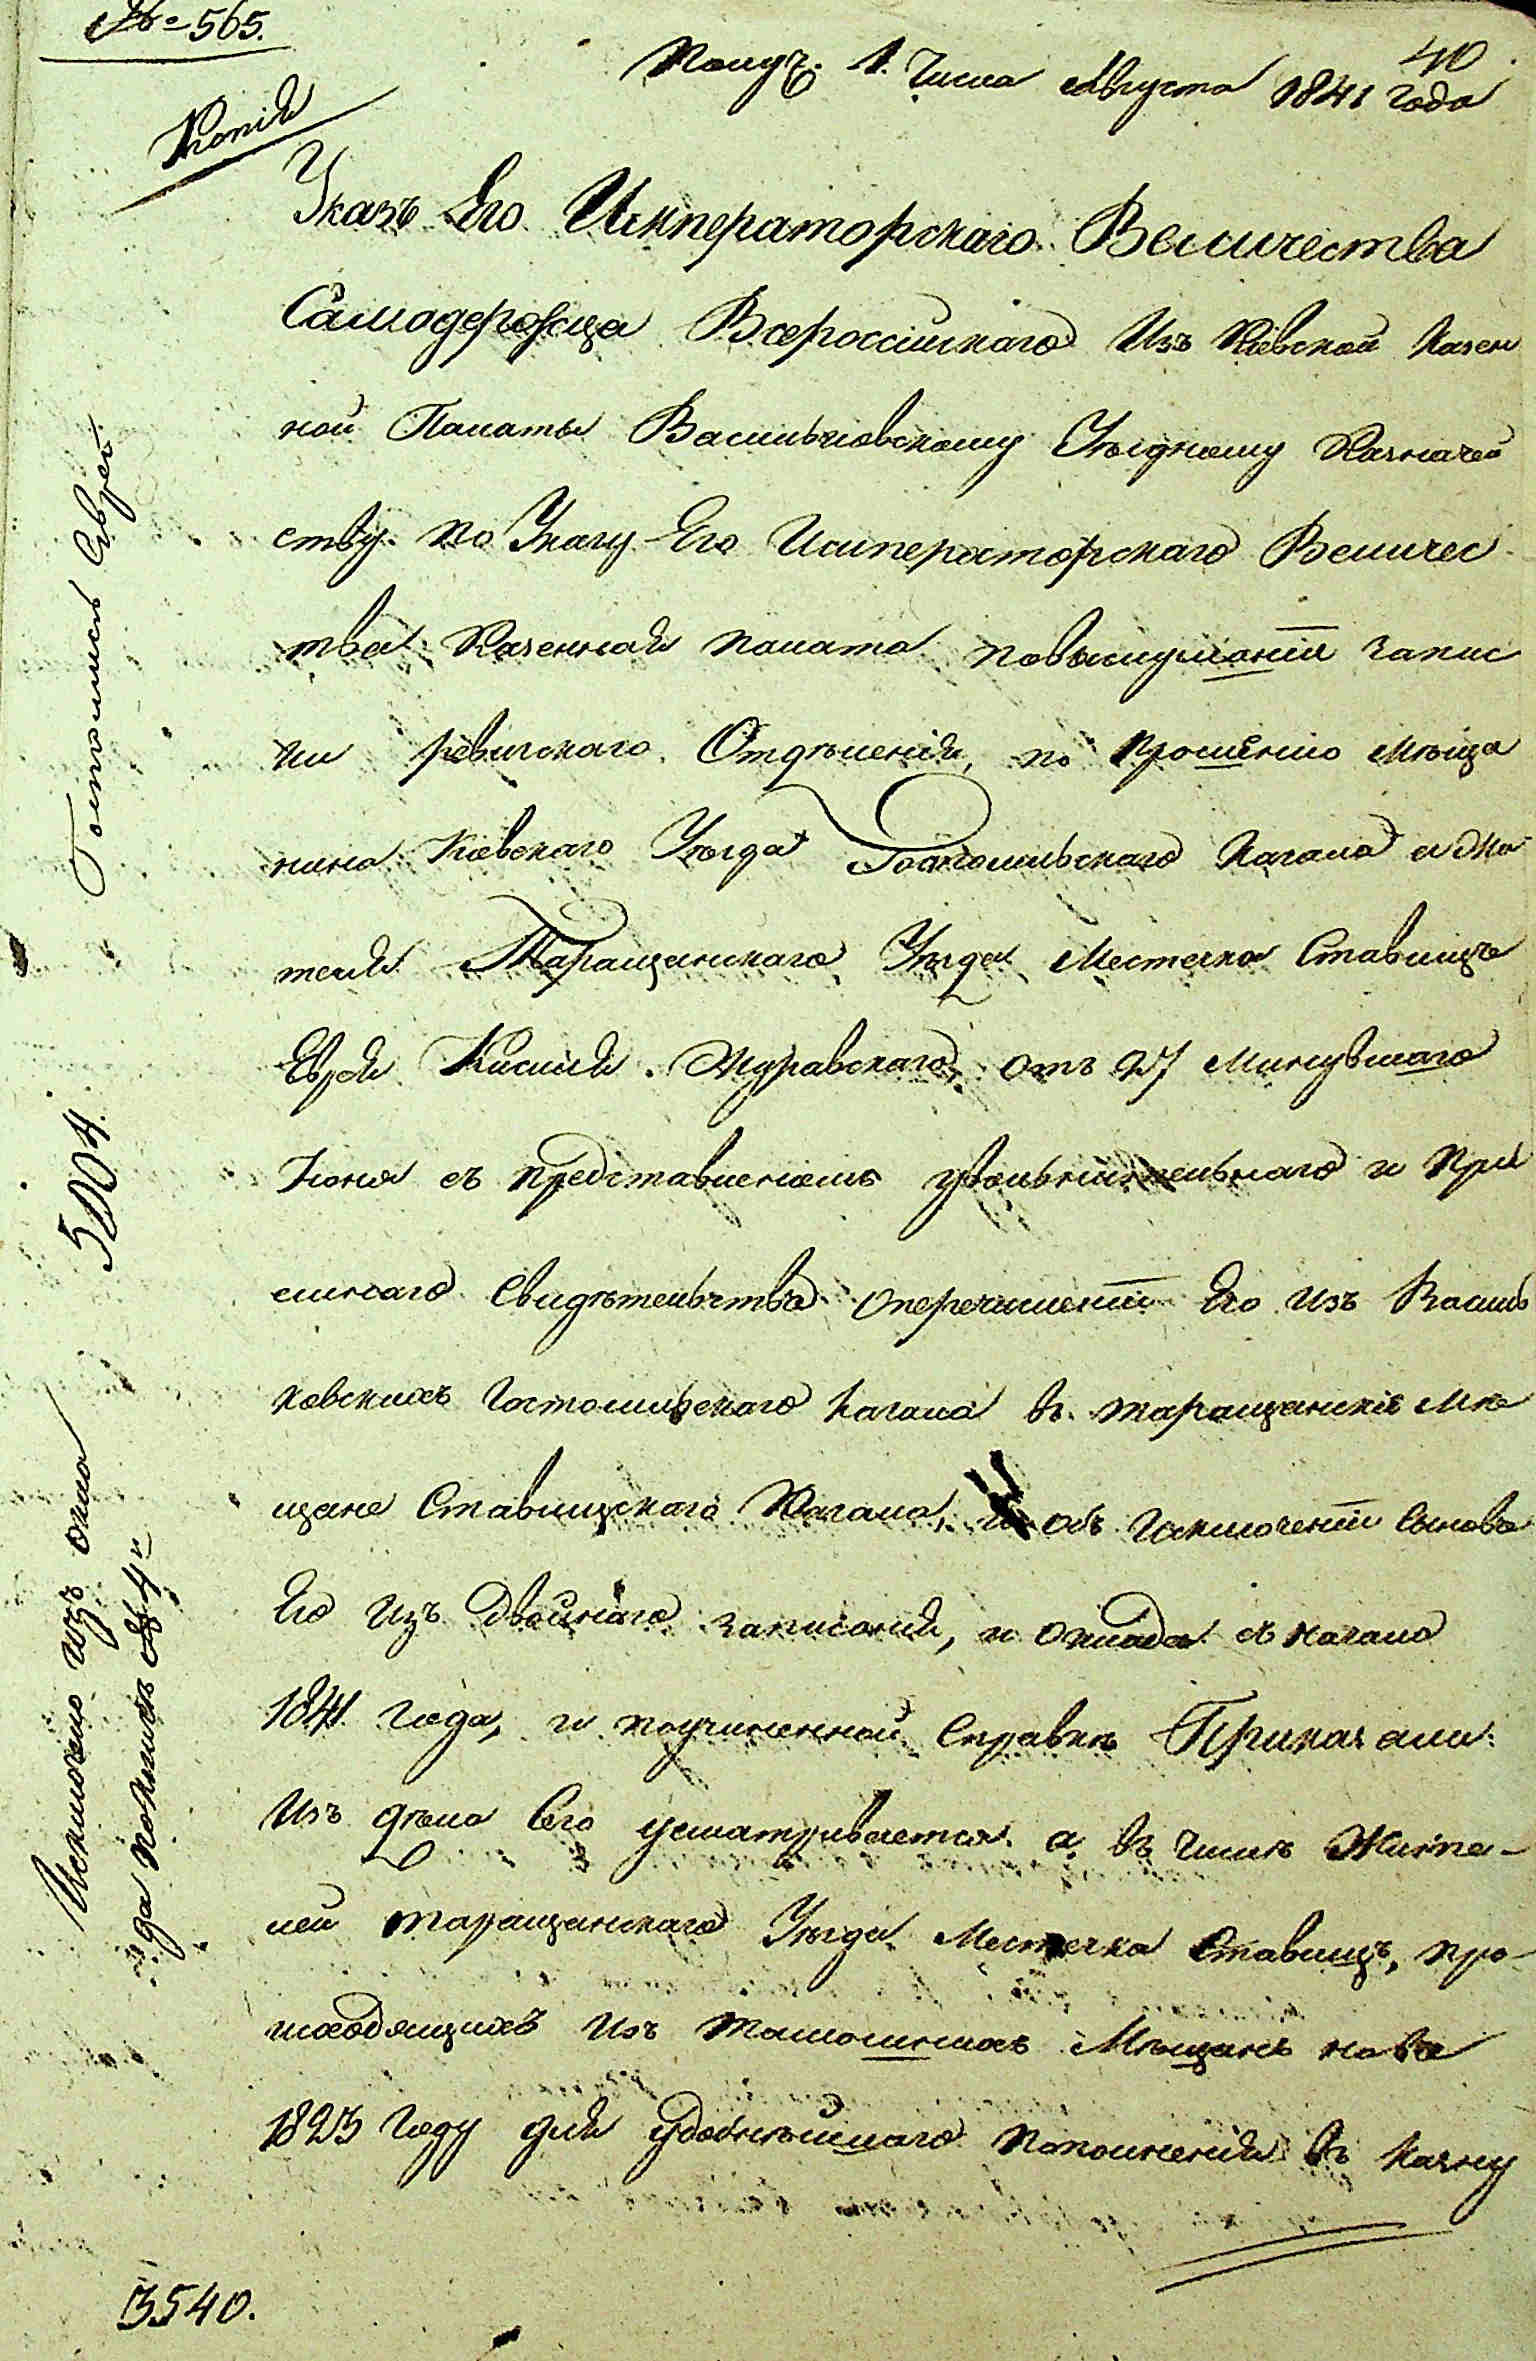 № 565.
Получ. 1. Числа Августа 1841 года
40
Копія
Указъ Его Императорскаго Величества
Самодержца Всероссійскаго Изъ Кіевской Казен
ной Палаты Васильковскому Уѣздному Казначей
ству. По Указу Его Императорскаго Величес
тва Казенная палата повыслушаніи запис
ки ревизскаго Отдѣленія, по прошенію мѣща
нина Кіевскаго Уѣзда Гостомильскаго Кагала а жи
теля Таращанскаго Уѣзда Местечка Ставищъ
Еврея Журавскаго, отъ 27 Минувшаго
Іюня съ представленіемъ увольнительнаго и прі
емнаго Свидѣтельства оперечисленіи Его изъ Василь
ковскихъ Гостомильскаго Кагала въ таращанскіе Мѣ
щане Ставищскаго Кагала, и объ изключеніи Сыновъ
Его изъ двойнаго записанія, и оклада съ начала
1841 года, и поучиненной Справкѣ Приказали:
Изъ дѣла Сего усматривается а. въ числѣ Жите-
лей таращанскаго Уѣзда Местечка Ставищъ, про-
исходящихъ изъ тамошнихъ Мѣщанъ
1823 году для удобнѣйшаго пополненія въ казну
Гостомель Еврей.
5104.
Исключено изъ оклада
за №4й
3540.